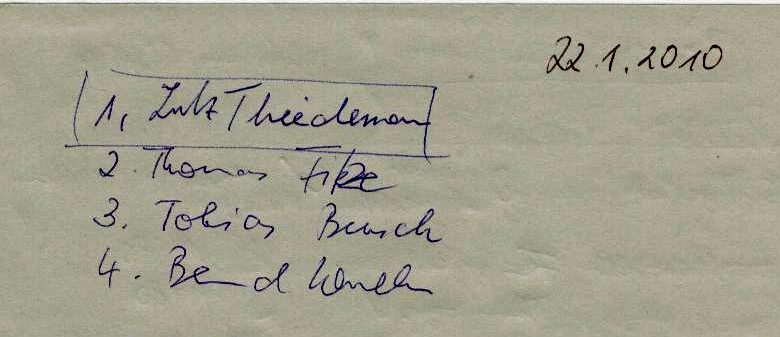 22.1.2010
1, Lutz Thiedemann
2. Thomas
3. Tobias Busch
4. Bernd